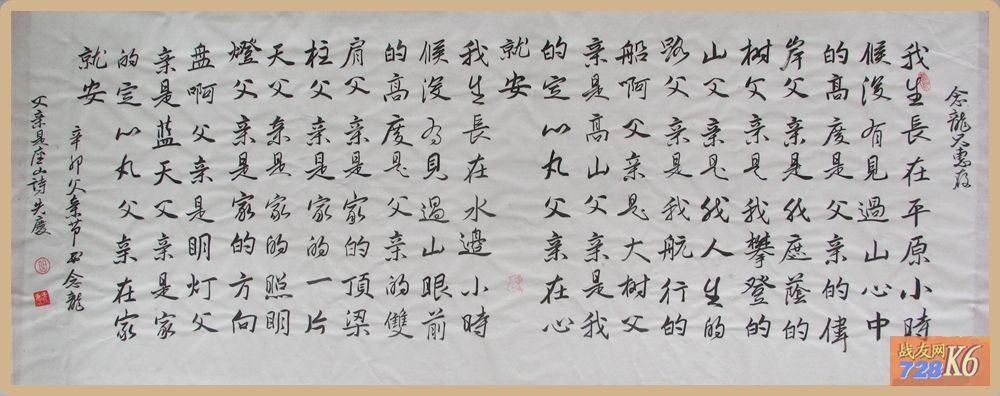 念龍兄惠存
我生長在平原小時
候沒有見過山心中
的高度是父亲的偉
岸父亲是我庇蔭的
树父亲是我攀登的
山父亲是我人生的
路父亲是我航行的
船啊父亲是大树父
亲是高山父亲是我
的定心丸父亲在心
就安
我生長在水邊小時
候沒有見過山眼前
的高度是父亲的雙
肩父亲是家的頂梁
柱父亲是家的一片
天父亲是家的照明
燈父亲是家的方向
盘啊父亲是明灯父
亲是藍天父亲是家
的定心丸父亲在家
就安
辛卯父亲节 念龍
父亲是座山詩
战友网
728K6